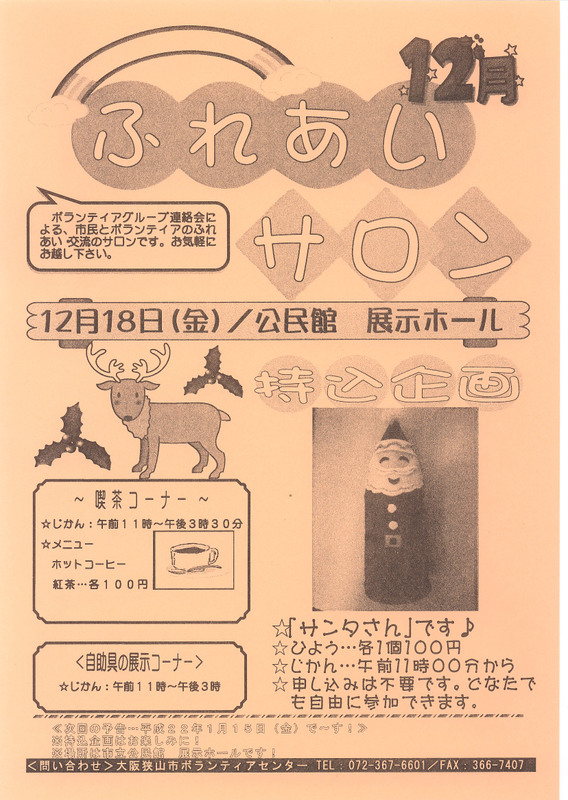 12月
ふれあい
サロン
ボランティアグループ連絡会に
よる、市民とボランティアのふれ
あい・交流のサロンです。お気軽に
お越し下さい。
12月18日(金)／公民館　展示ホール
持込企画
～ 喫茶コーナー ～
☆じかん：午前11時～午後3時30分
☆メニュー
ホットコーヒー
紅茶…各100円
☆「サンタさん」です♪
☆ひよう…各1個100円
☆じかん…午前11時00分から
☆申し込みは不要です。どなたで
も自由に参加できます。
＜自助具の展示コーナー＞
☆じかん：午前11時～午後3時
＜次回の予告～平成22年1月15日（金）で～す！＞
※持込企画はお楽しみに！
※場所は市立公民館　展示ホールです！
＜問い合わせ＞大阪狭山市ボランティアセンター TEL：072-367-6601／FAX：366-7407